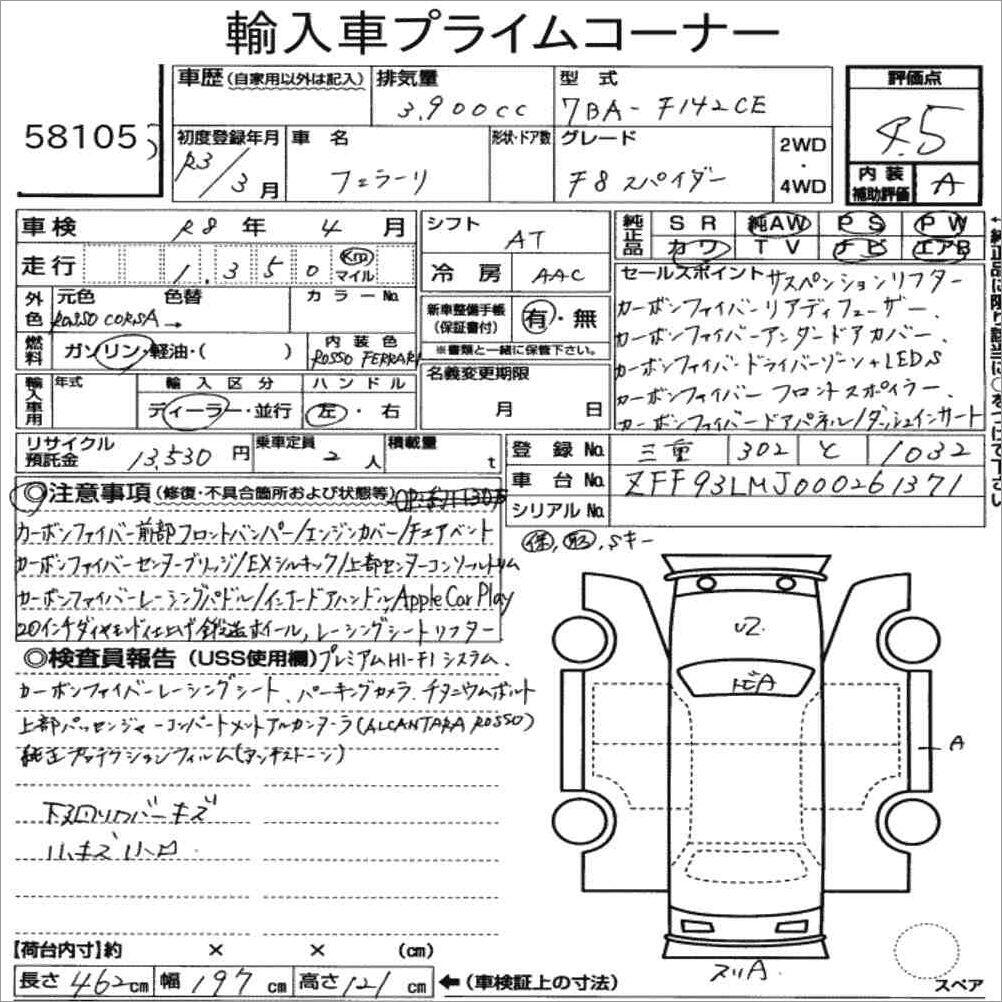 輸入車プライムコーナー
58105
車歴(自家用以外は記入) 排気量 3,900cc 型式 7BA-F142CE 評価点 4.5
初度登録年月 R3/3月 車名 フェラーリ 形状・ドア数 グレード F8 スパイダー 2WD・4WD 内装補助評価 A
車検 R8年 4月 シフト AT 純正品 SR 純AW PS PW
カワ TV ナビ エアB
走行 1,350 Km マイル 冷房 AAC
セールスポイント サスペンションリフター
カーボンファイバーリアディフューザー、
カーボンファイバーアンダードアカバー、
カーボンファイバードライバーゾーン+LEDS
カーボンファイバー フロントスポイラー、
カーボンファイバードアパネル/ダッシュインサート
外色 元色 色替 カラーNo.
ROSSO CORSA→
新車整備手帳(保証書付) 有・無
※書類と一緒に保管下さい。
燃料 ガソリン・軽油・( ) 内装色 ROSSO FERRARI
輸入車用 年式 輸入区分 ディーラー・並行 ハンドル 左・右
名義変更期限 月 日
リサイクル預託金 13,530円 乗車定員 2人 積載量 t
登録No. 三重 302 と 1032
車台No. ZFF93LMJ000261371
シリアルNo.
◎注意事項(修復・不具合箇所および状態等)
カーボンファイバー前部フロントバンパー/エンジンカバー/チェアベント
カーボンファイバーセンターブリッジ/EXシルキック/上部センターコンソールトリム
カーボンファイバーレーシングパドル/インナードアハンドル, Apple Car Play
20インチダイヤモンド仕上げ鍛造ホイール, レーシングシートリフター
保, 取, Sキー
◎検査員報告(USS使用欄) プレミアムHI-FIシステム、
カーボンファイバーレーシングシート、パーキングカメラ、チタニウムボルト
上部パッセンジャーコンパートメントアルカンターラ(ALCANTARA ROSSO)
純正プロテクションフィルム(アンチストーン)
下回りカバーキズ
小キズ 小凹
U2
トビA
A
ヌリA
スペア
【荷台内寸】約 × × (cm)
長さ 462cm 幅 197cm 高さ 121cm ←(車検証上の寸法)